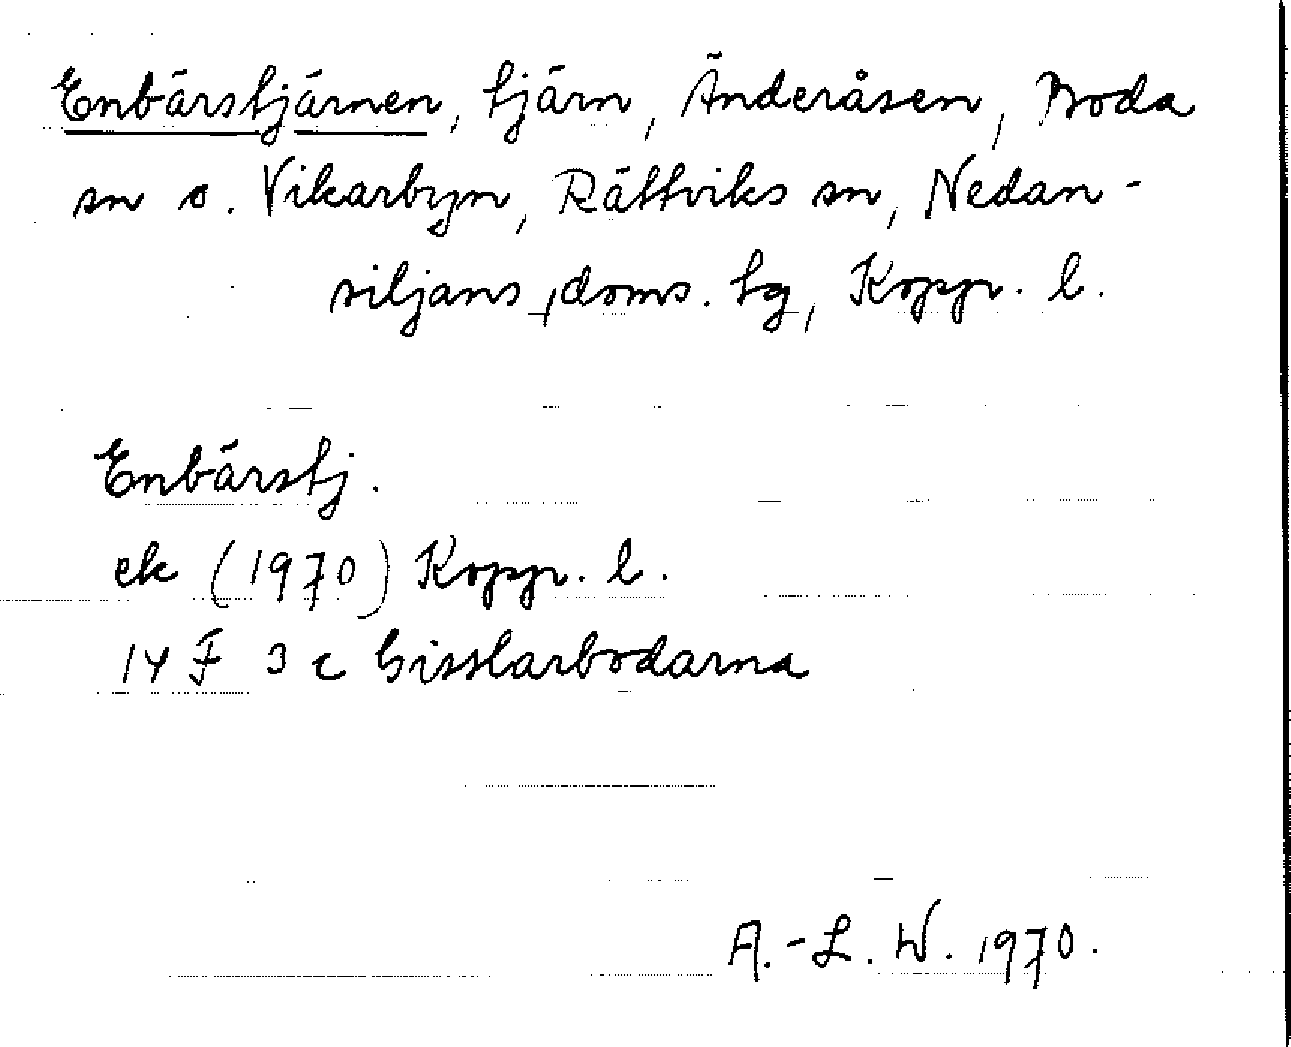 Enbärstjärnen, tjärn, Änderåsen, Boda
sn o. Vikarbyn, Rättviks sn, Nedan-
siljans, doms. tg, Kopp. l.
Enbärstj.
ek (1970) Kopp. l.
14 F 3 c Gisslarbodarna
A.-L. W. 1970.